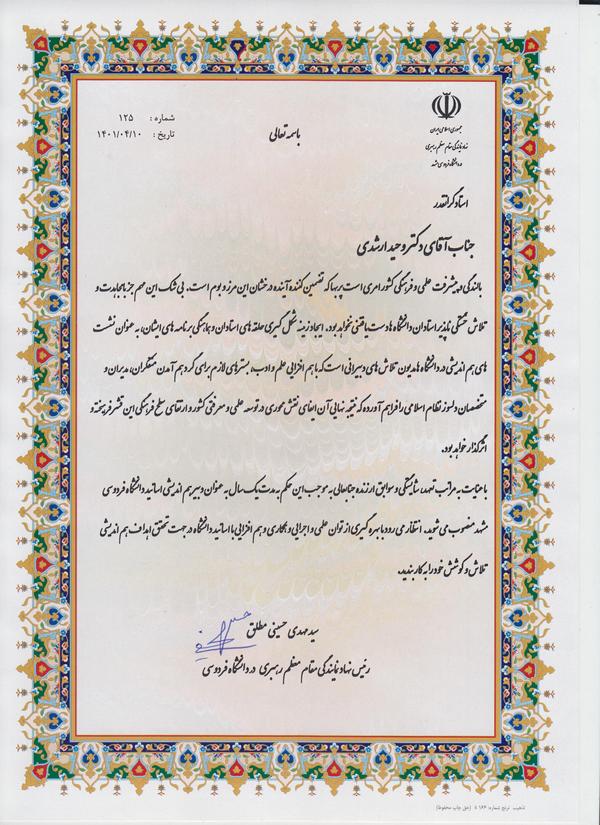 جمهوری اسلامی ایران
نهاد نمایندگی مقام معظم رهبری
در دانشگاه فردوسی مشهد
شماره : ۱۲۵
تاریخ : ۱۴۰۱/۰۴/۱۰
باسمه تعالی
استاد گرانقدر
جناب آقای دکتر وحید ارشدی
بالندگی و پیشرفت علمی و فرهنگی کشور امری است پربها که تضمین کننده آینده درخشان این مرز و بوم است. بی شک این مهم جز با مجاهدت و
تلاش خستگی ناپذیر استادان دانشگاه ها دست یافتنی نخواهد بود. ایجاد زمینه شکل گیری حلقه های استادان و هماهنگی برنامه های ایشان، به عنوان نشست
های هم اندیشی در دانشگاه ها مدیون تلاش های دبیرانی است که با هم افزایی علم و ادب، بسترهای لازم برای گرد هم آمدن متفکران، مدیران و
متخصصان دلسوز نظام اسلامی را فراهم آورده که نتیجه نهایی آن ایفای نقش محوری در توسعه علمی و معرفتی کشور و ارتقای سطح فرهنگی این قشر فرهیخته و
اثرگذار خواهد بود.
با عنایت به مراتب تعهد، شایستگی و سوابق ارزنده جنابعالی به موجب این حکم به مدت یک سال به عنوان دبیر هم اندیشی اساتید دانشگاه فردوسی
مشهد منصوب می شوید. انتظار می رود با بهره گیری از توان علمی و اجرایی و همکاری و هم افزایی با اساتید دانشگاه در جهت تحقق اهداف هم اندیشی
تلاش و کوشش خود را به کار بندید.
سید مهدی حسینی مطلق
رئیس نهاد نمایندگی مقام معظم رهبری در دانشگاه فردوسی
تذهیب ترنج شماره: ۱۶۶ ۵ (حق چاپ محفوظ)